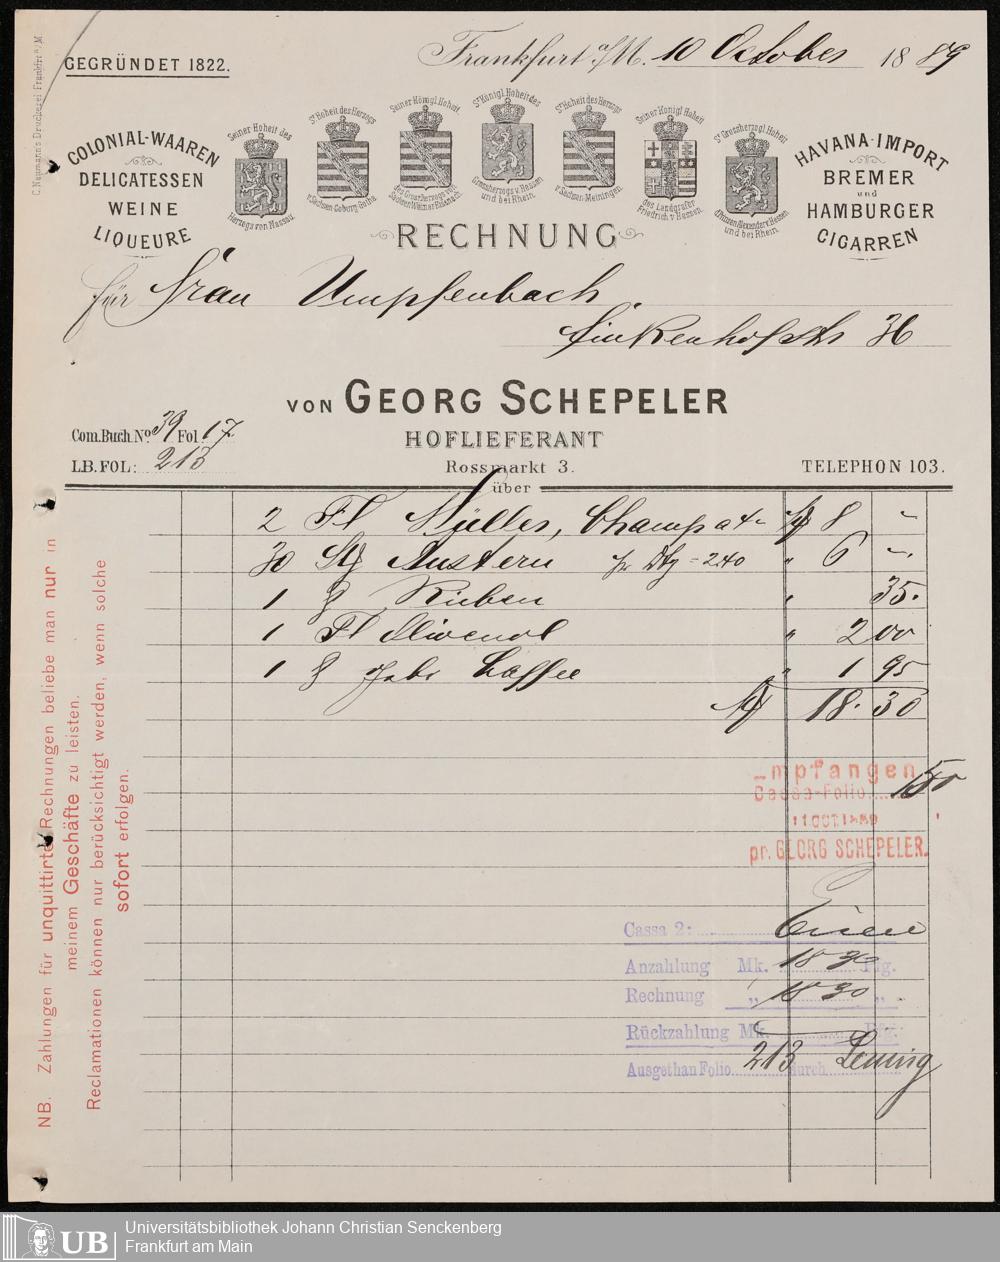 C. Naumann's Druckerei Frankfurt a/M.
GEGRÜNDET 1822.
Frankfurt a/M. 10 October 1889
COLONIAL-WAAREN
DELICATESSEN
WEINE
LIQUEURE
Seiner Hoheit des
Herzogs von Nassau.
Sr. Hoheit des Herzogs
v. Sachsen Coburg-Gotha
Seiner Königl. Hoheit
des Grossherzogs von
Sachsen Weimar Eisenach.
Sr. Königl. Hoheit des
Grossherzogs v. Hessen
und bei Rhein.
Sr. Hoheit des Herzogs
v. Sachsen-Meiningen.
Seiner Königl. Hoheit
des Landgrafen
Friedrich v. Hessen.
Sr. Grossherzogl. Hoheit
Prinzen Alexander v. Hessen
und bei Rhein.
HAVANA-IMPORT
BREMER
und
HAMBURGER
CIGARREN
RECHNUNG
für Frau Umpfenbach.
Finkenhofstr 36
VON GEORG SCHEPELER
HOFLIEFERANT
Rossmarkt 3.
Com. Buch. No. 39 Fol. 17.
L.B. FOL: 213
TELEPHON 103.
über
2 Fl Müller, Champ a 4- M 8 -
30 Stg Austern pr Dtz = 240 " 6 -.
1 Rüben " 35.
1 Fl " 2 00
1 Caffee " 1 95
M 18.30
NB. Zahlungen für unquittirte Rechnungen beliebe man nur in
meinem Geschäfte zu leisten.
Reclamationen können nur berücksichtigt werden, wenn solche
sofort erfolgen.
Empfangen
Cassa-Folio 150
11 OCT 1889
pr. GEORG SCHEPELER.
Cassa 2:
Anzahlung Mk. 18 30 Pfg.
Rechnung " 18 30 "
Rückzahlung Mk. Pfg.
Ausgethan Folio 213 durch
UB
Universitätsbibliothek Johann Christian Senckenberg
Frankfurt am Main